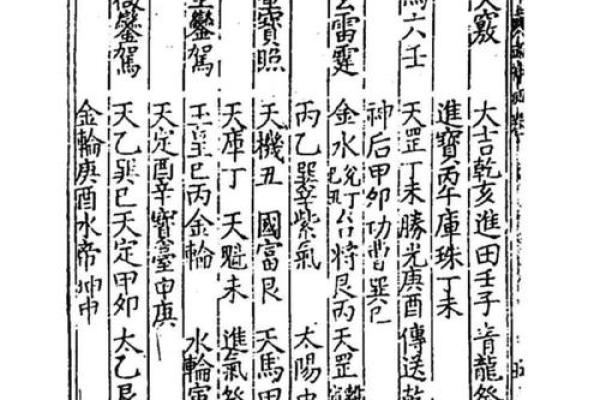 竅 大吉乾亥進田壬子 青龍
進寶丙午庫珠丁未
六壬 天罡丁未勝光庚酉傳送
神后甲卯功曹巽巳
雷霆 金水兌丁台將艮丙天罡
丙乙巽辛紫氣 太陽
寶照 天機丑 國富艮 天馬甲
天庫丁 天魁未 進氣
鑾駕 玉皇巳丙金輪 水輪
天定酉辛寶臺申庚
鑾駕 天乙巽巳天定甲卯 太乙
金輪庚酉水帝坤申